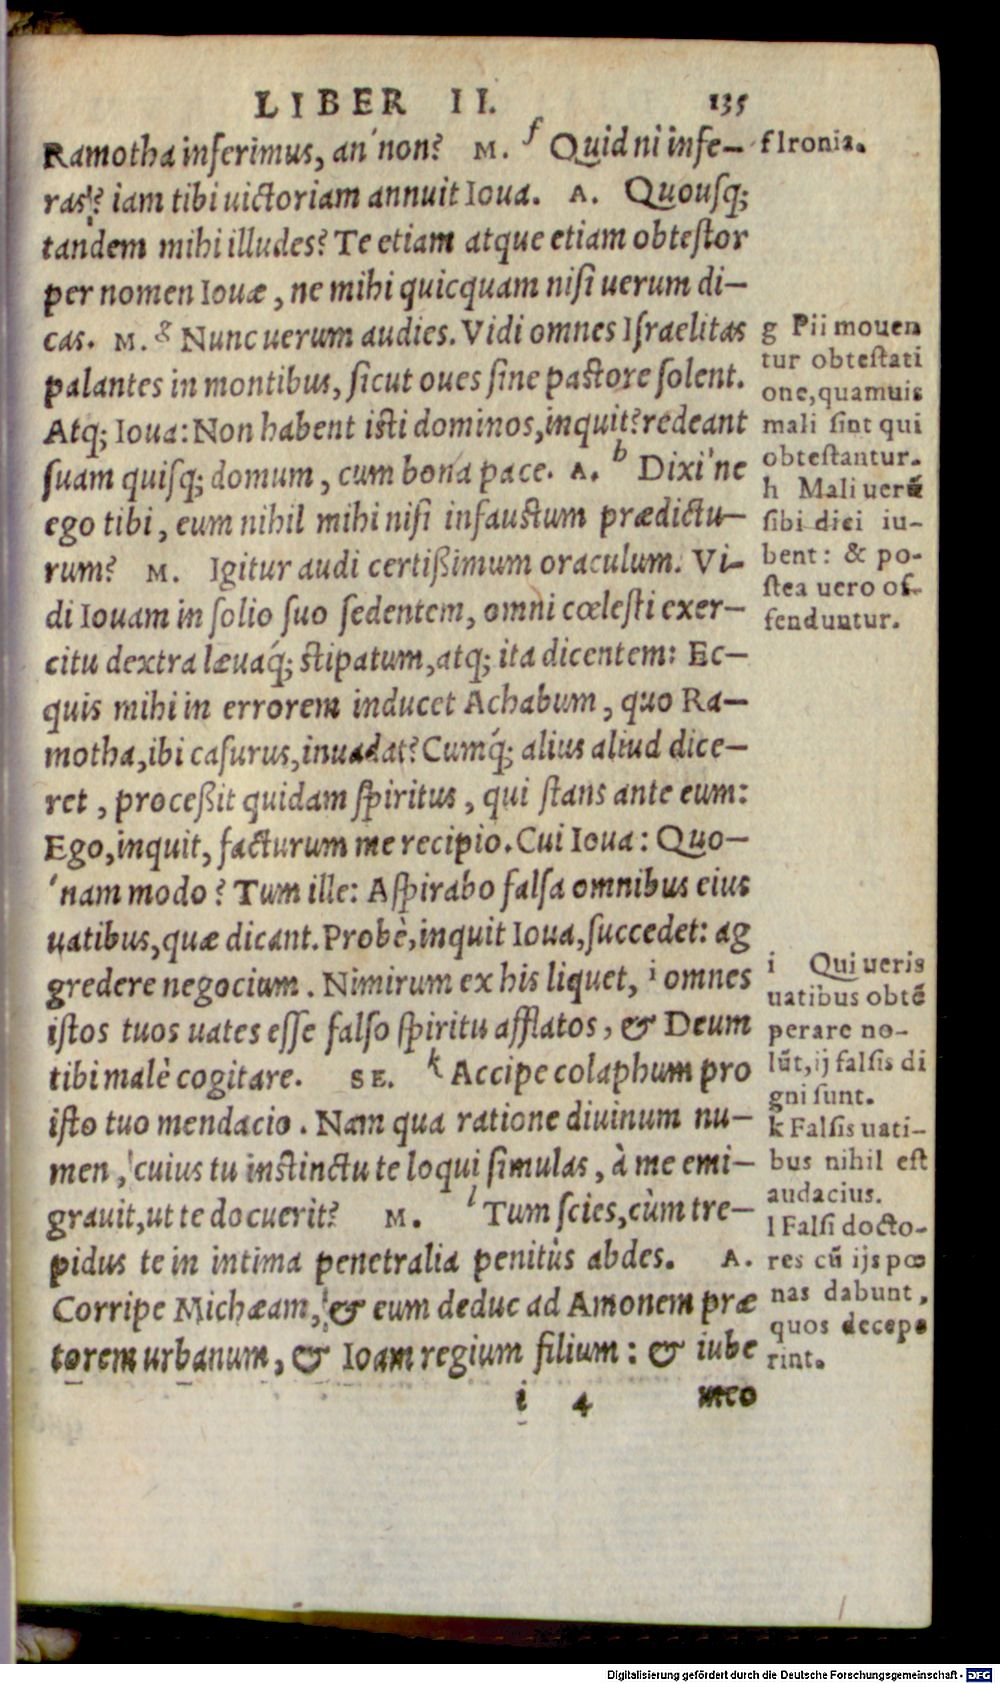 LIBER II. 135
Ramotha inferimus, an' non? M. f Quid ni infe-
ras? iam tibi uictoriam annuit Ioua. A. Quousq;
tandem mihi illudes? Te etiam atque etiam obtestor
per nomen Iouæ, ne mihi quicquam nisi uerum di-
cas. M. g Nunc uerum audies. Vidi omnes Israelitas
palantes in montibus, sicut oues sine pastore solent.
Atq; Ioua: Non habent isti dominos, inquit? redeant
suam quisq; domum, cum bona pace. A. h Dixi'ne
ego tibi, eum nihil mihi nisi infaustum prædictu-
rum? M. Igitur audi certißimum oraculum. Vi-
di Iouam in solio suo sedentem, omni cœlesti exer-
citu dextra læuaq́; stipatum, atq; ita dicentem: Ec-
quis mihi in errorem inducet Achabum, quo Ra-
motha, ibi casurus, inuadat? Cumq́; alius aliud dice-
ret, proceßit quidam spiritus, qui stans ante eum:
Ego, inquit, facturum me recipio. Cui Ioua: Quo-
'nam modo? Tum ille: Aspirabo falsa omnibus eius
uatibus, quæ dicant. Probè, inquit Ioua, succedet: ag
gredere negocium. Nimirum ex his liquet, i omnes
istos tuos uates esse falso spiritu afflatos, & Deum
tibi malè cogitare. SE. k Accipe colaphum pro
isto tuo mendacio. Nam qua ratione diuinum nu-
men, cuius tu instinctu te loqui simulas, à me emi-
grauit, ut te docuerit? M. l Tum scies, cùm tre-
pidus te in intima penetralia penitùs abdes. A.
Corripe Michæam, & eum deduc ad Amonem præ
torem urbanum, & Ioam regium filium: & iube
i 4 meo
f Ironia.
g Pii mouen
tur obtestati
one, quamuis
mali sint qui
obtestantur.
h Mali uerũ
sibi dici iu-
bent: & po-
stea uero of-
fenduntur.
i Qui ueris
uatibus obtẽ
perare no-
lũt, ij falsis di
gni sunt.
k Falsis uati-
bus nihil est
audacius.
l Falsi docto-
res cũ ijs pœ
nas dabunt,
quos decepe
rint.
Digitalisierung gefördert durch die Deutsche Forschungsgemeinschaft - DFG